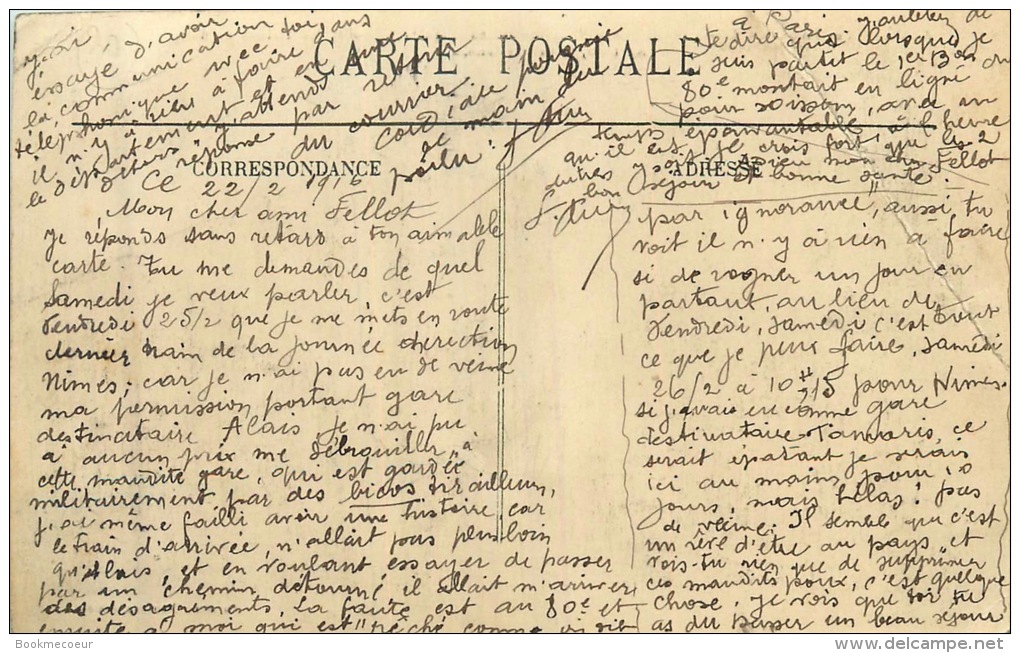 CARTE POSTALE
CORRESPONDANCE
ADRESSE
Ce 22/2 1916
Mon cher ami Fellot
Je réponds sans retard à ton aimable
carte. Tu me demandes de quel
Samedi je veux parler, c'est
Vendredi 25/2 que je me mets en route
dernier train de la journée direction
Nimes; car je n'ai pas eu de veine
ma permission portant gare
destinataire Alais je n'ai pu
à aucun prix me débrouiller, à
cette maudite gare, qui est gardée
militairement par des bicos tirailleurs,
j'ai même failli avoir une histoire car
le train d'arrivée, n'allait pas plus loin
qu'Alais, et en voulant essayer de passer
par un chemin détourné, il allait m'arriver
des désagréments. La faute est au 80e et
ensuite à moi qui est "péché comme on dit
par ignorance", aussi tu
voit il n'y à rien à faire
si de rogner un jour en
partant, au lieu de
Vendredi, Samedi c'est tout
ce que je peux faire, Samedi
26/2 à 10H,15 pour Nimes.
si j'avais eu comme gare
destinataire Tamaris, ce
serait épatant je serais
ici au moins pour 10
jours, mais hélas! pas
de veine. Il semble que c'est
un rêve d'être au pays, et
vois-tu rien que de supprimer
ces maudits poux, c'est quelque
chose. Je vois que toi tu
as du passer un beau séjour
à Paris. J'oubliai de
te dire que lorsque je
suis partit le 1er Bon du
80e montait en ligne
pour Soissons, avec un
temps épouvantable, à l'heure
qu'il est, je crois fort qu'ils
y sont. Adieu mon cher Fellot
bon séjour et bonne santé.
essayé d'avoir
la communication
téléphonique avec toi, dans
il n'y à rien à faire
le département et en
dehors. J'attends
réponse par retour
du courrier.